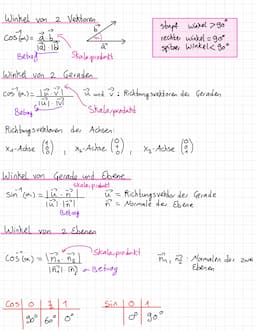 Winkel von 2 Vektoren
cos⁻¹(α) = a⃗ · b⃗ / |a⃗| · |b⃗|
Skalarprodukt
Betrag
b⃗
a⃗
stumpf Winkel > 90°
rechter Winkel = 90°
spitzer Winkel < 90°
Winkel von 2 Geraden
cos⁻¹(α) = |u⃗ · v⃗| / |u⃗| · |v⃗|
u⃗ und v⃗ : Richtungsvektoren der Geraden
Betrag
Skalarprodukt
Richtungsvektoren der Achsen:
x₁-Achse (1 0 0) , x₂-Achse (0 1 0) , x₃-Achse (0 0 1)
Winkel von Gerade und Ebene
Skalarprodukt
sin⁻¹(α) = |u⃗ · n⃗| / |u⃗| · |n⃗|
u⃗ = Richtungsvektor der Gerade
n⃗ = Normale der Ebene
Betrag
Winkel von 2 Ebenen
Skalarprodukt
cos⁻¹(α) = |n⃗₁ · n⃗₂| / |n⃗₁| · |n⃗₂|
Betrag
n⃗₁, n⃗₂ : Normalen der zwei
Ebenen
cos | 0 | ½ | 1
90° | 60° | 0°
sin | 0 | 1
0° | 90°